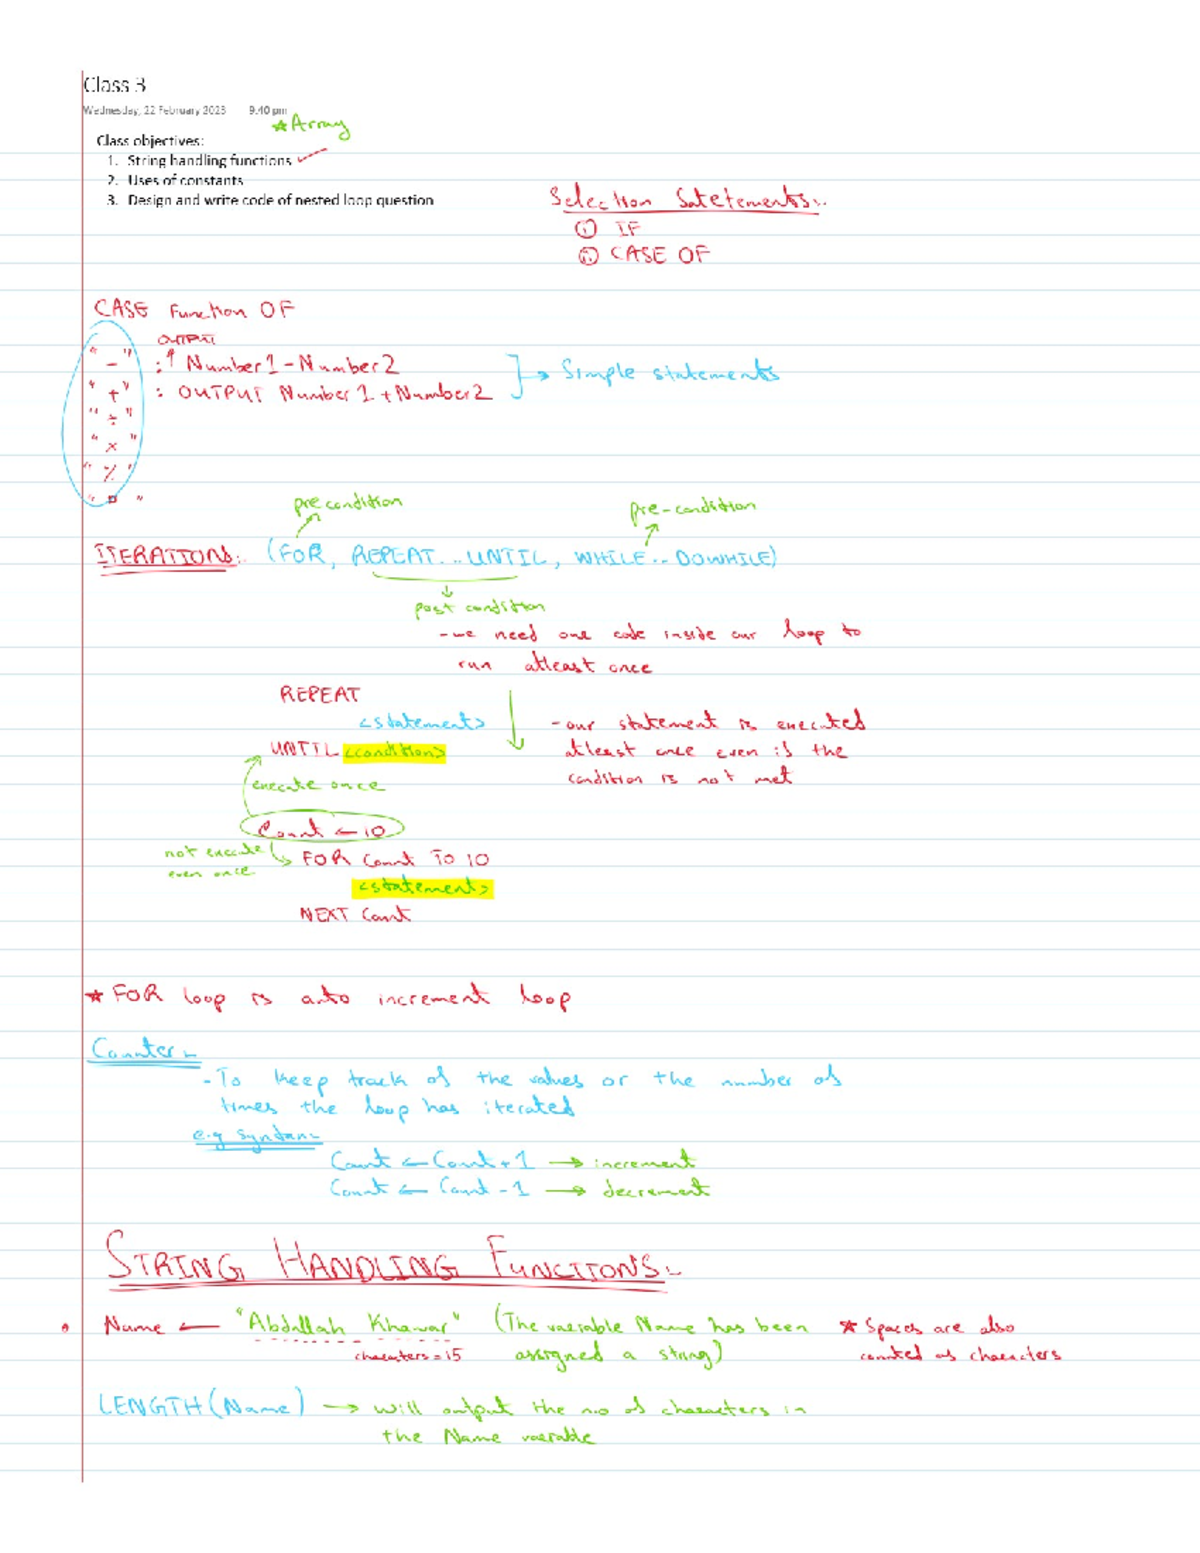 Class 3
Wednesday, 22 February 2023 9:40 pm
* Array
Class objectives:
1. String handling functions
2. Uses of constants
3. Design and write code of nested loop question
Selection Satetements:.
① IF
② CASE OF
CASE Function OF
OUTPUT
"-" : Number1 - Number2
"+" : OUTPUT Number1 + Number2
} → Simple statements
"÷"
"×"
"%"
pre condition
pre-condition
ITERATIONS:. (FOR, REPEAT...UNTIL, WHILE..DOWHILE)
post condition
- we need one code inside our loop to
run atleast once
REPEAT
<statement>
UNTIL <condition>
- our statement is executed
atleast once even if the
condition is not met
execute once
Count ← 10
not execute
even once
FOR Count TO 10
<statement>
NEXT Count
* FOR loop is auto increment loop
Counter:-
- To keep track of the values or the number of
times the loop has iterated
e.g syntax:-
Count ← Count + 1 → increment
Count ← Count - 1 → decrement
STRING HANDLING FUNCTIONS:-
Name ← "Abdullah Khawar" (The vaeriable Name has been
assigned a string)
characters = 15
* Spaces are also
counted as characters
LENGTH(Name) → will output the no of characters in
the Name vaerable